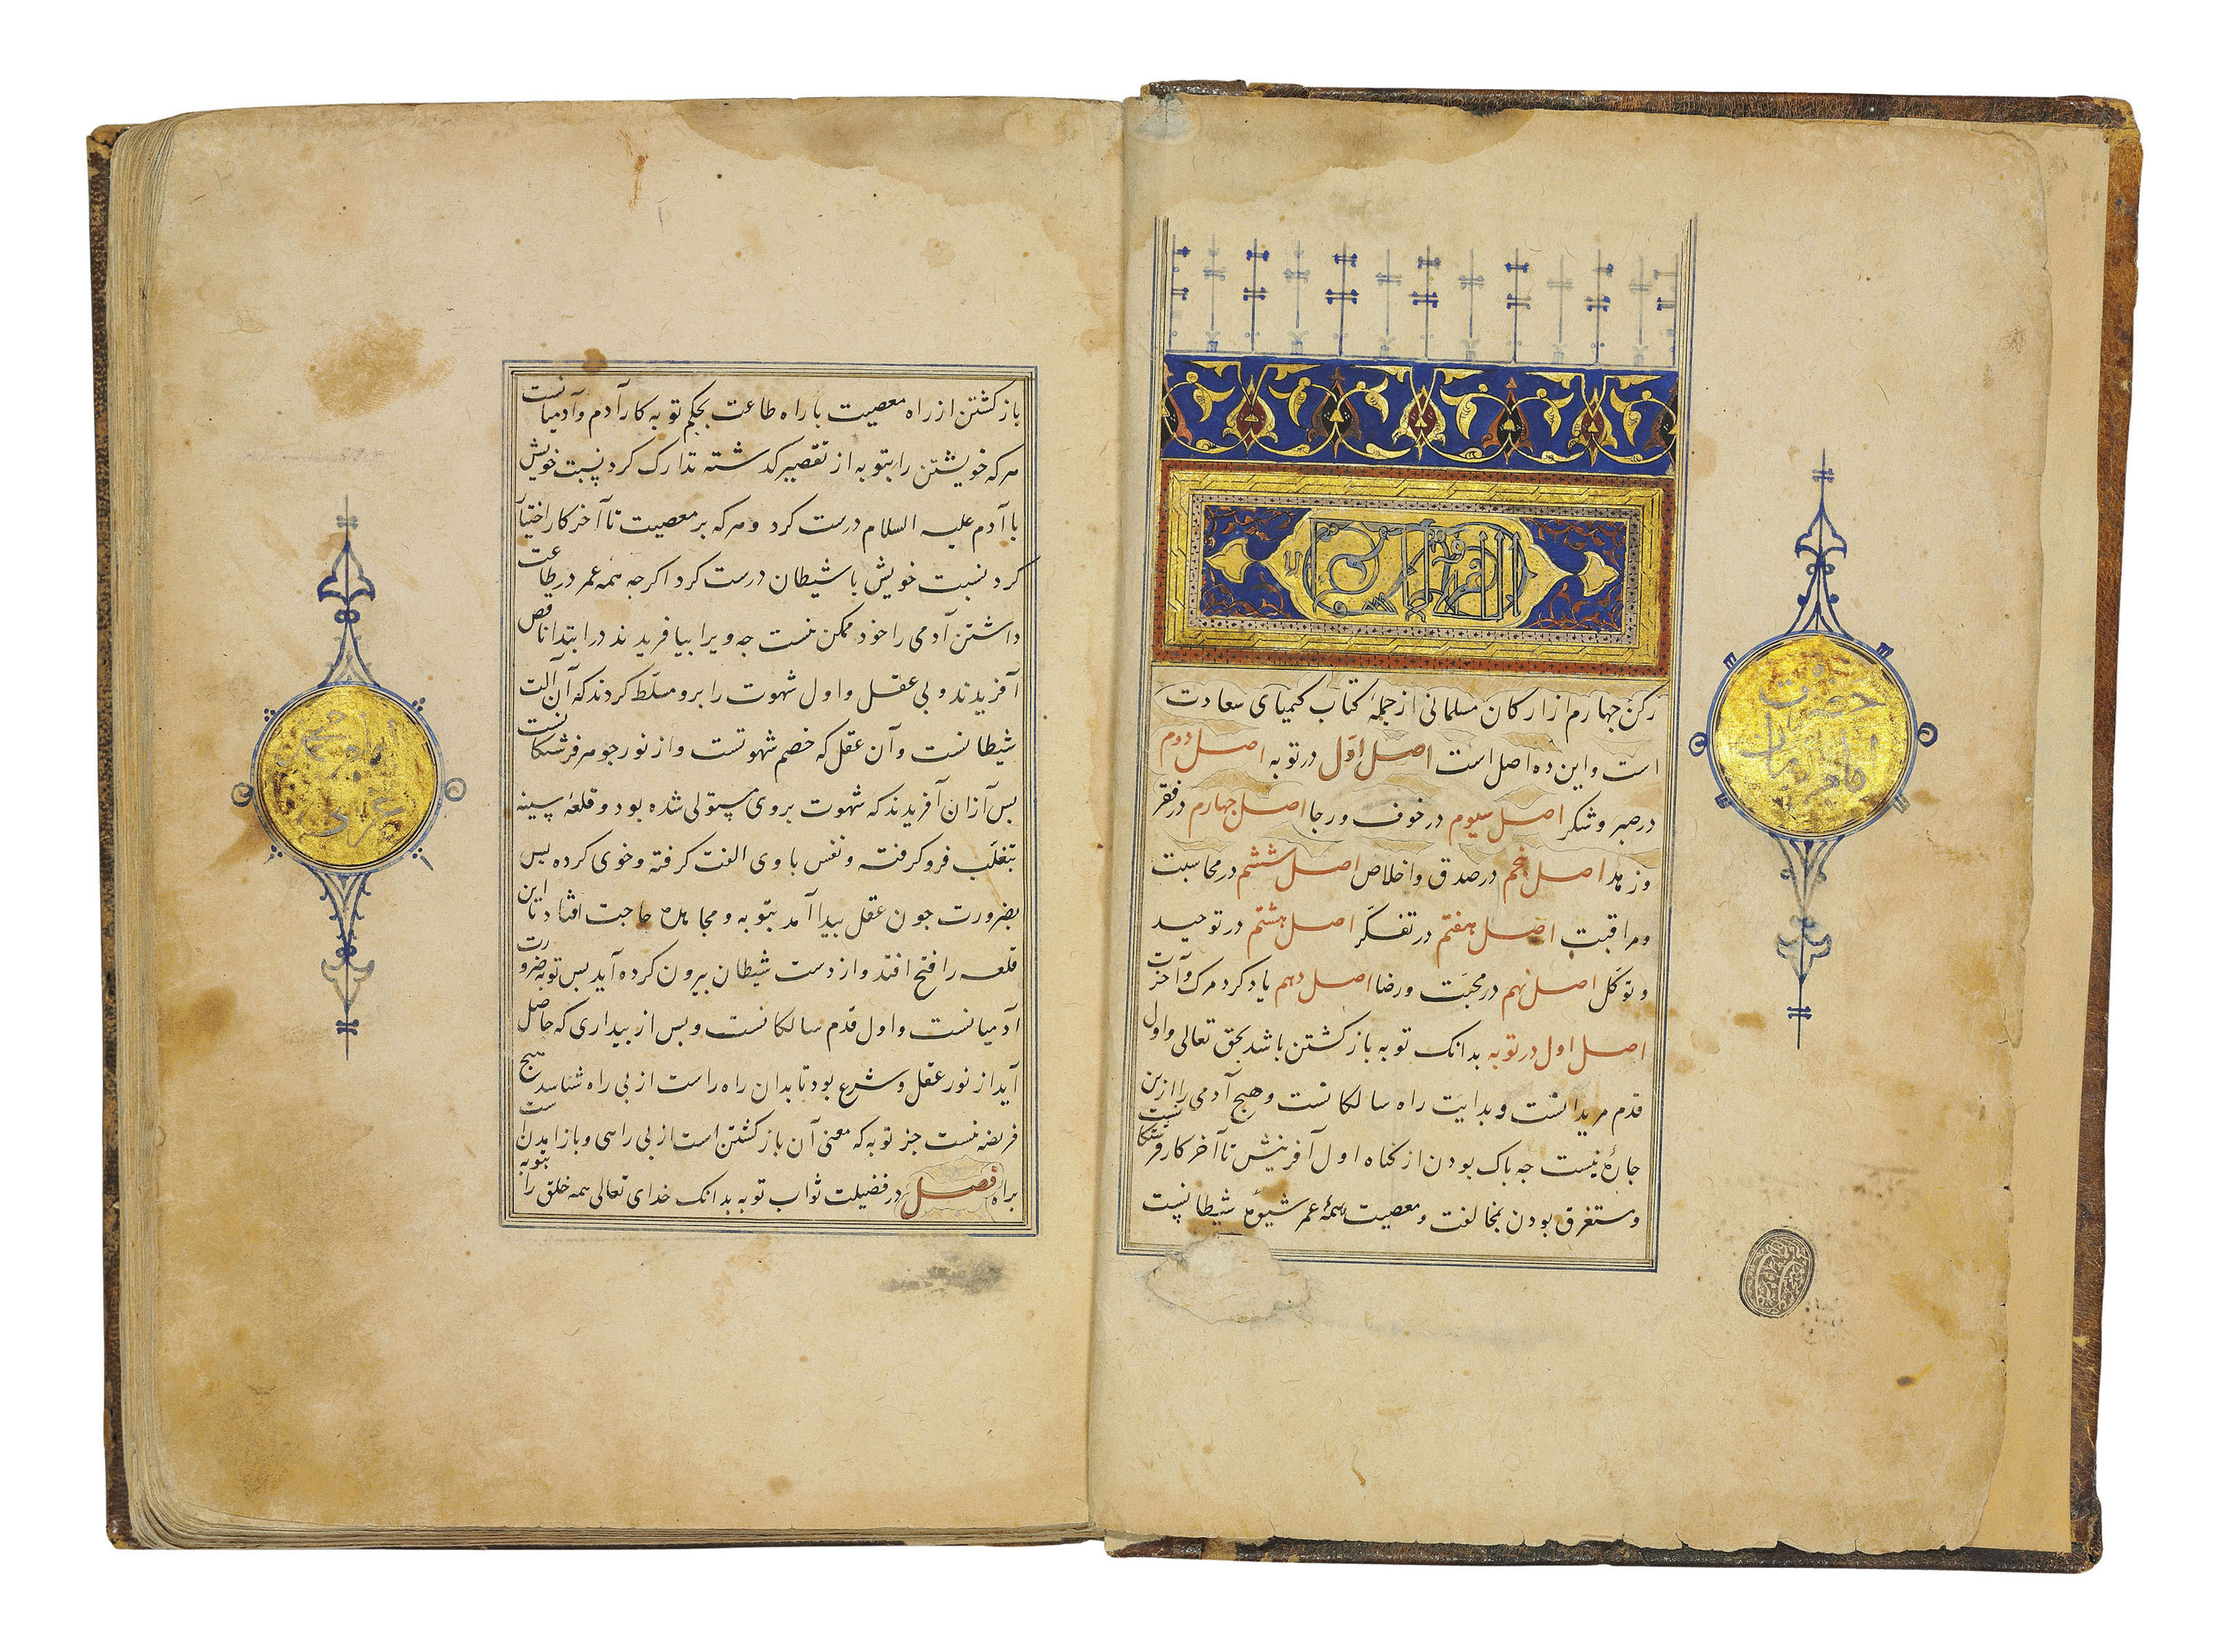 رکن جهارم از ارکان مسلمانی از جمله کتاب کیمیای سعادت
است و این ده اصل است اصل اول در توبه اصل دوم
در صبر و شکر اصل سیوم در خوف و رجا اصل جهارم در فقر
و زهد اصل پنجم در صدق و اخلاص اصل ششم در محاسبت
و مراقبت اصل هفتم در تفکّر اصل هشتم در توحید
و توکّل اصل نهم در محبّت و رضا اصل دهم یاد کرد مرک و آخرت
اصل اول در توبه بدانک توبه باز کشتن باشد بحق تعالی و اول
قدم مریدانست و بدایت راه سالکانست و هیج آدمی را ازین
جارهٔ نیست جه باک بودن از کناه اول آفرینش تا آخر کار فرشتکانست
و مستغرق بودن بمخالفت و معصیت همهٔ عمر شیوهٔ شیطانیست
حضرت
باز کشتن از راه معصیت با راه طاعت بحکم توبه کار آدم و آدمیانست
هر که خویشتن را بتوبه از تقصیر کذشته تدارک کرد نسبت خویش
با آدم علیه السلام درست کرد و هر که بر معصیت تا آخر کار اختیار
کرد نسبت خویش با شیطان درست کرد اکرجه همه عمر در طاعت
داشتن آدمی را خود ممکن نیست جه ویرا بیافریدند در ابتدا ناقص
آفریدند و بی عقل و اول شهوت را برو مسلّط کردند که آن آلت
شیطانست و آن عقل که خصم شهوتست و از نور جوهر فرشتکانست
بس از آن آفریدند که شهوت بر وی مستولی شده بود و قلعهٔ سینه
بتغلّب فرو کرفته و نفس با وی الفت کرفته و خوی کرده بس
بضرورت جون عقل بیدا آمد بتوبه و مجاهده حاجت افتاد تا این
قلعه را فتح افتد و از دست شیطان بیرون کرده آید بس توبه ضرورت
آدمیانست و اول قدم سالکانست و بس از بیداری که حاصل
آید از نور عقل و شرع بود تا بدان راه راست از بی راه شناسد هیج
فریضه نیست جز توبه که معنی آن باز کشتن است از بی راهی و باز آمدن است
براه فصل در فضیلت ثواب توبه بدانک خدای تعالی همه خلق را بتوبه